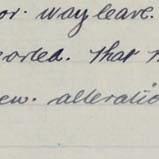 or. Way leave.
orted. That
ew. alteratio